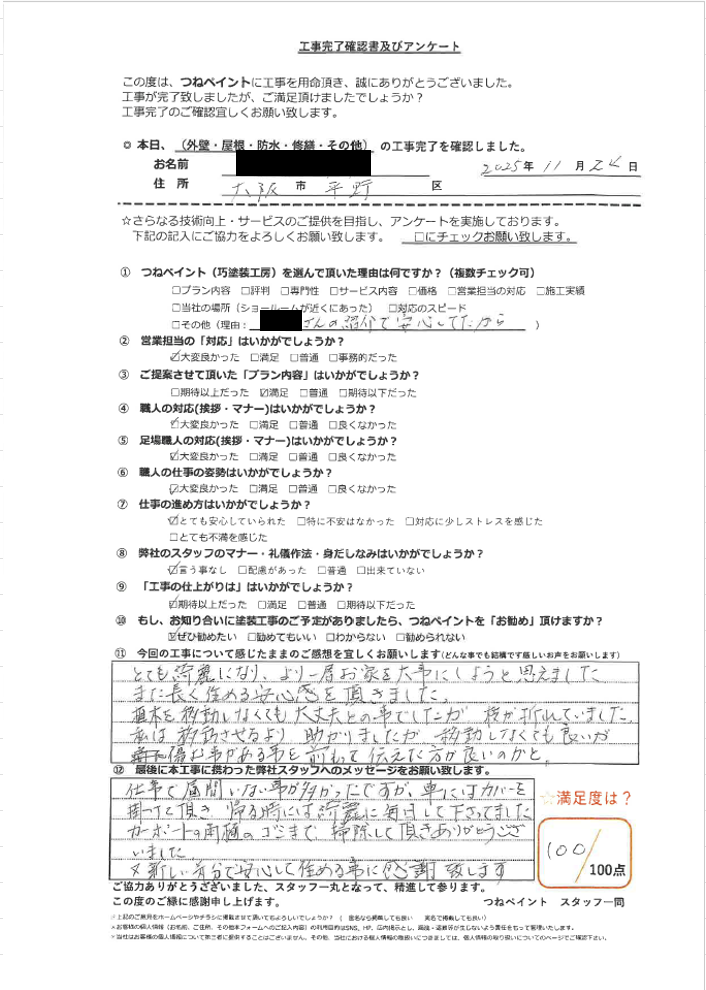 工事完了確認書及びアンケート
この度は、つねペイントに工事を用命頂き、誠にありがとうございました。
工事が完了致しましたが、ご満足頂けましたでしょうか？
工事完了のご確認宜しくお願い致します。
◎ 本日、（外壁・屋根・防水・修繕・その他）の工事完了を確認しました。
お名前 2025年 11月 24日
住 所 大阪 市 平野 区
☆さらなる技術向上・サービスのご提供を目指し、アンケートを実施しております。
下記の記入にご協力をよろしくお願い致します。 □にチェックお願い致します。
① つねペイント（巧塗装工房）を選んで頂いた理由は何ですか？（複数チェック可）
□プラン内容 □評判 □専門性 □サービス内容 □価格 □営業担当の対応 □施工実績
□当社の場所（ショールームが近くにあった） □対応のスピード
□その他（理由： さんの紹介で安心してたから ）
② 営業担当の「対応」はいかがでしょうか？
☑大変良かった □満足 □普通 □事務的だった
③ ご提案させて頂いた「プラン内容」はいかがでしょうか？
□期待以上だった ☑満足 □普通 □期待以下だった
④ 職人の対応(挨拶・マナー)はいかがでしょうか？
☑大変良かった □満足 □普通 □良くなかった
⑤ 足場職人の対応(挨拶・マナー)はいかがでしょうか？
☑大変良かった □満足 □普通 □良くなかった
⑥ 職人の仕事の姿勢はいかがでしょうか？
☑大変良かった □満足 □普通 □良くなかった
⑦ 仕事の進め方はいかがでしょうか？
☑とても安心していられた □特に不安はなかった □対応に少しストレスを感じた
□とても不満を感じた
⑧ 弊社のスタッフのマナー・礼儀作法・身だしなみはいかがでしょうか？
☑言う事なし □配慮があった □普通 □出来ていない
⑨ 「工事の仕上がりは」はいかがでしょうか？
☑期待以上だった □満足 □普通 □期待以下だった
⑩ もし、お知り合いに塗装工事のご予定がありましたら、つねペイントを「お勧め」頂けますか？
☑ぜひ勧めたい □勧めてもいい □わからない □勧められない
⑪ 今回の工事について感じたままのご感想を宜しくお願いします(どんな事でも結構です厳しいお声をお願いします)
とても綺麗になり、より一層お家を大事にしようと思えました
また長く住める安心感を頂きました。
植木を移動しなくても大丈夫との事でしたが 枝が折れていました。
私は移動させるより 助かりましたが 移動しなくても良いが
傷お事がある事を前もって伝えた方が良いのかと。
⑫ 最後に本工事に携わった弊社スタッフへのメッセージをお願い致します。
仕事で昼間いない事が多かったですが、車にはカバーを
掛けて頂き 帰る時には綺麗に毎日して下さってました
カーポートの雨樋のゴミまで 掃除して頂きありがとうござ
いました
又新しい気分で安心して住める事に感謝致します
☆満足度は？
100/100点
ご協力ありがとうございました、スタッフ一丸となって、精進して参ります。
この度のご縁に感謝申し上げます。 つねペイント スタッフ一同
※上記のご意見をホームページやチラシに掲載させて頂いてもよろしいでしょうか？（ 匿名なら掲載しても良い 実名で掲載しても良い）